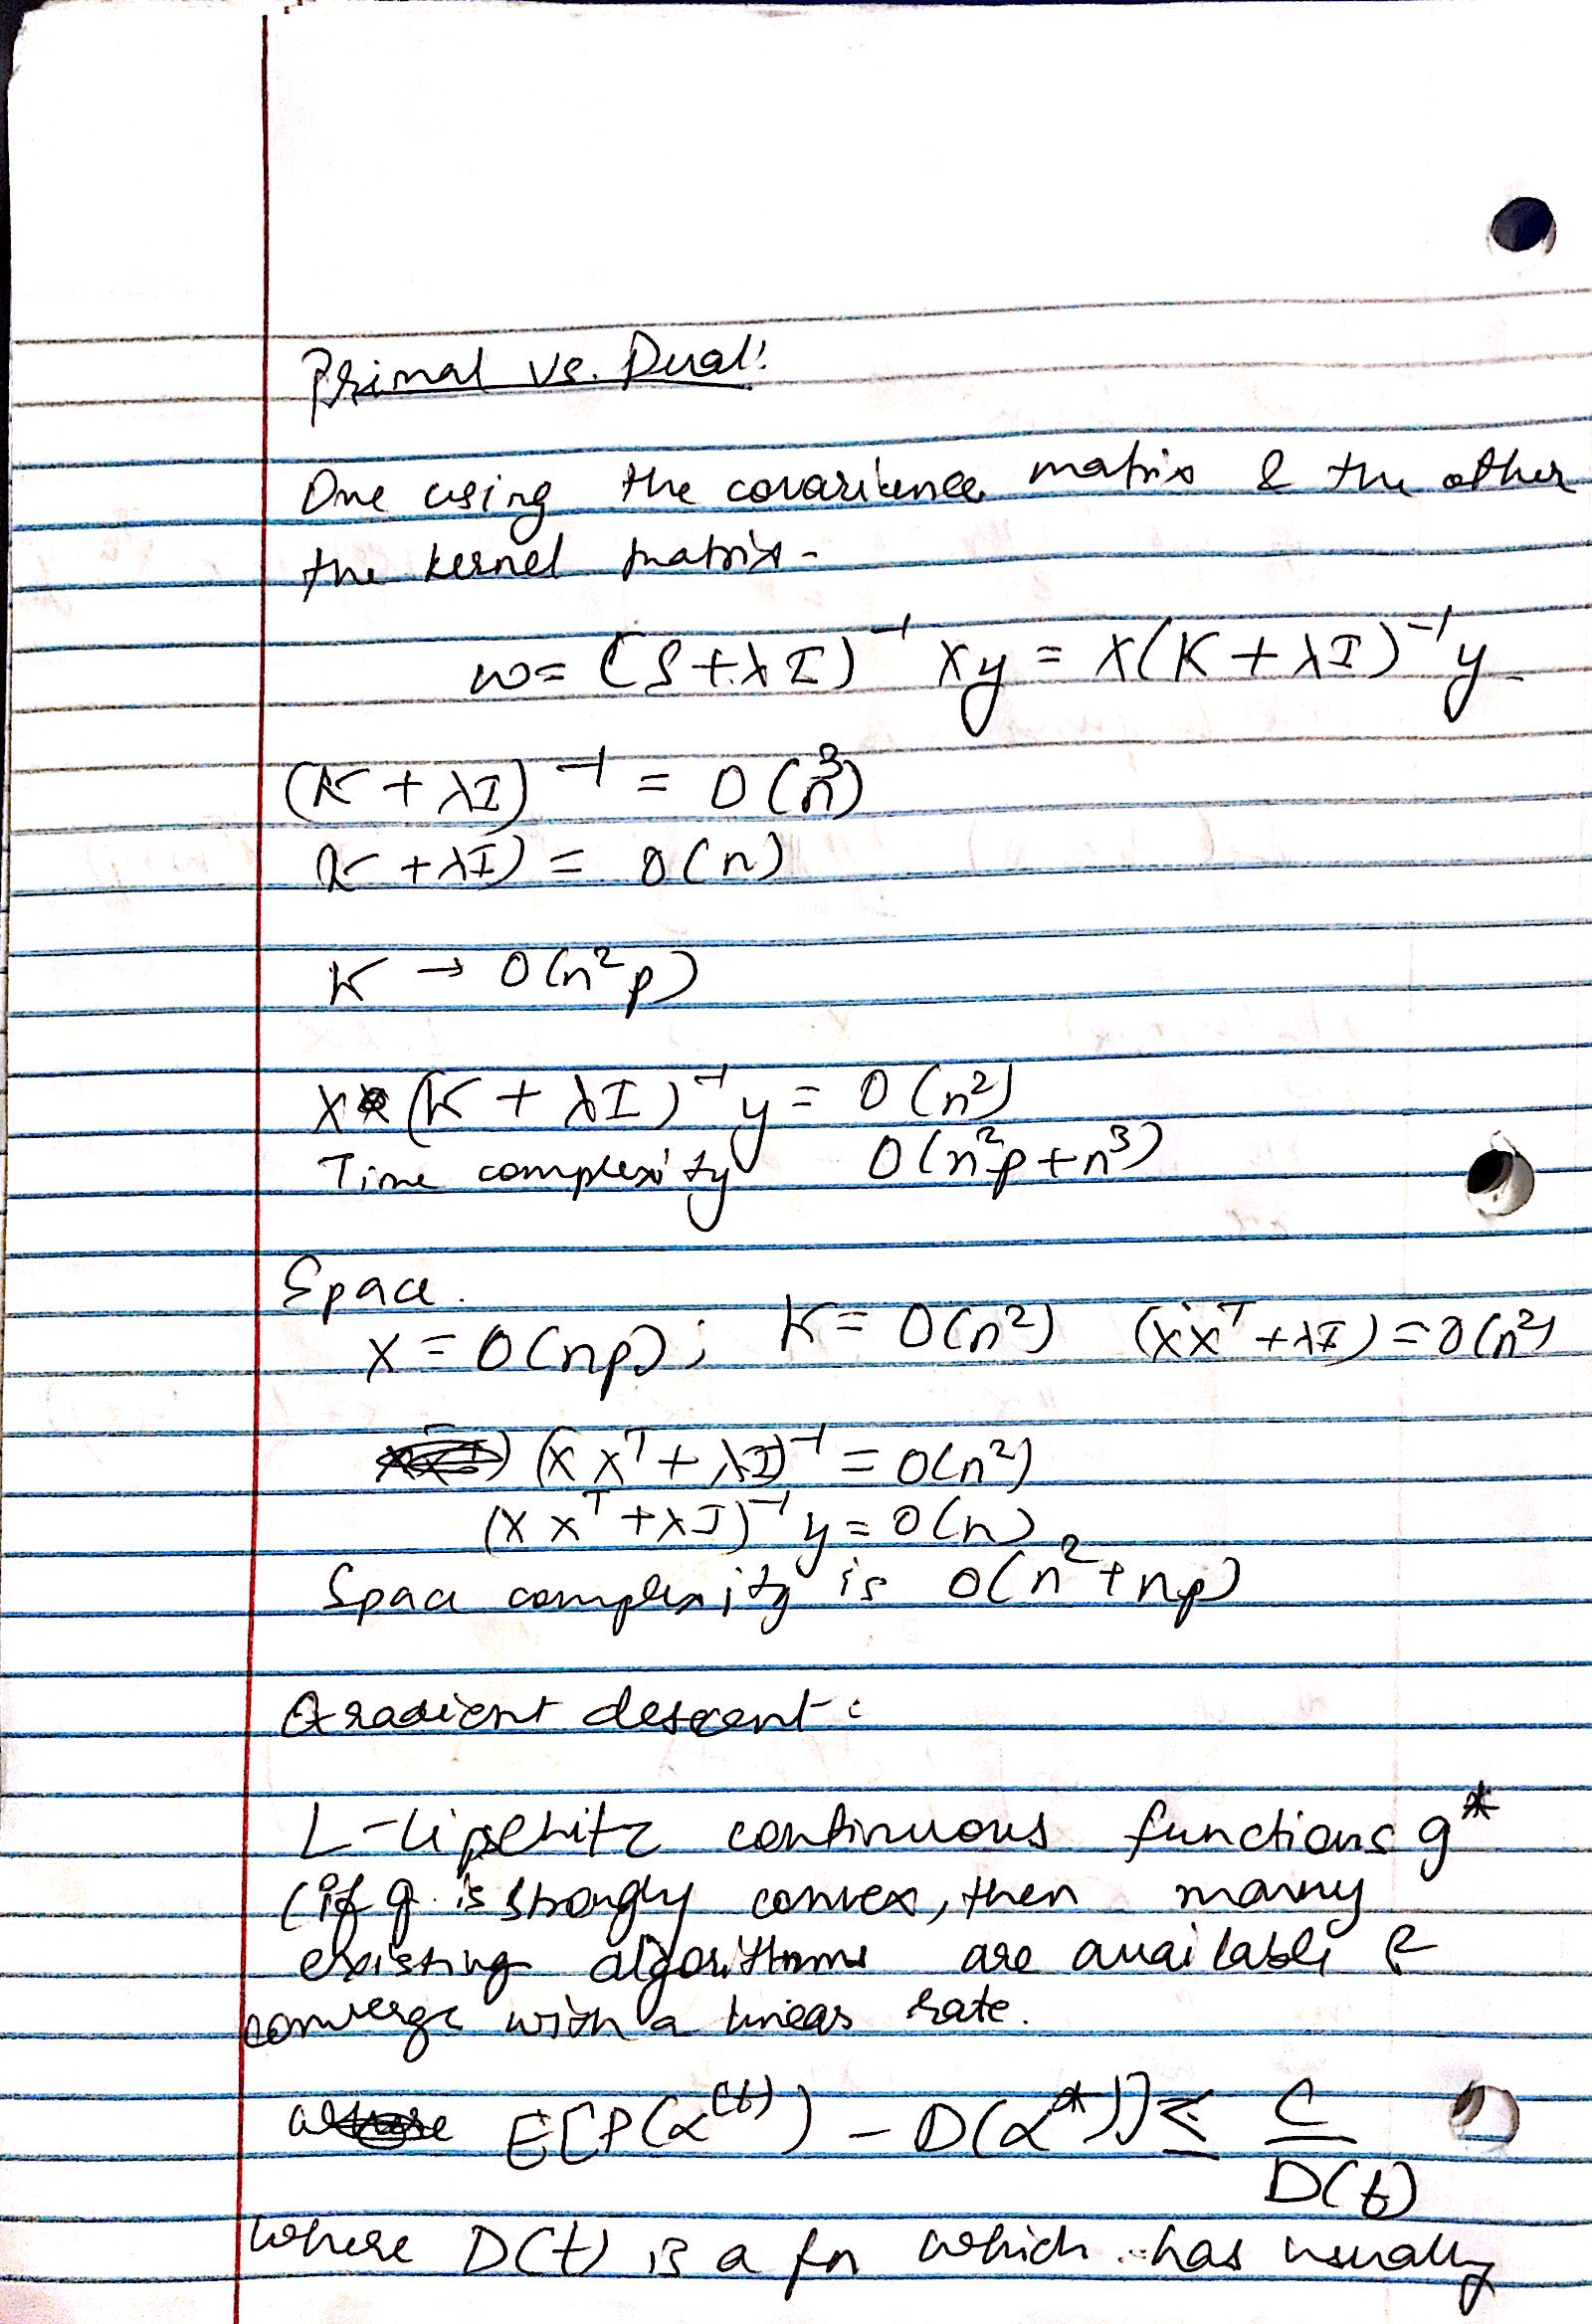 Primal vs. Dual:
One using the covariance matrix & the other
the kernel matrix-
w = (S+λI)⁻¹ Xy = X(K+λI)⁻¹y
(K+λI)⁻¹ = O(n³)
K+λI) = O(n)
K → O(n²p)
X (K+λI)⁻¹y = O(n²)
Time complexity O(n²p+n³)
Space.
X = O(np); K = O(n²) (XXᵀ+λI) = O(n²)
(XXᵀ+λI)⁻¹ = O(n²)
(XXᵀ+λI)⁻¹y = O(n)
Space complexity is O(n²+np)
Gradient descent:
L-lipschitz continuous functions g*
(if g is strongly convex, then many
existing algorithms are available &
converge with a linear rate.
E[P(α⁽ᵗ⁾) - D(α*)] ≤ C/D(t)
where D(t) is a fn which has usually